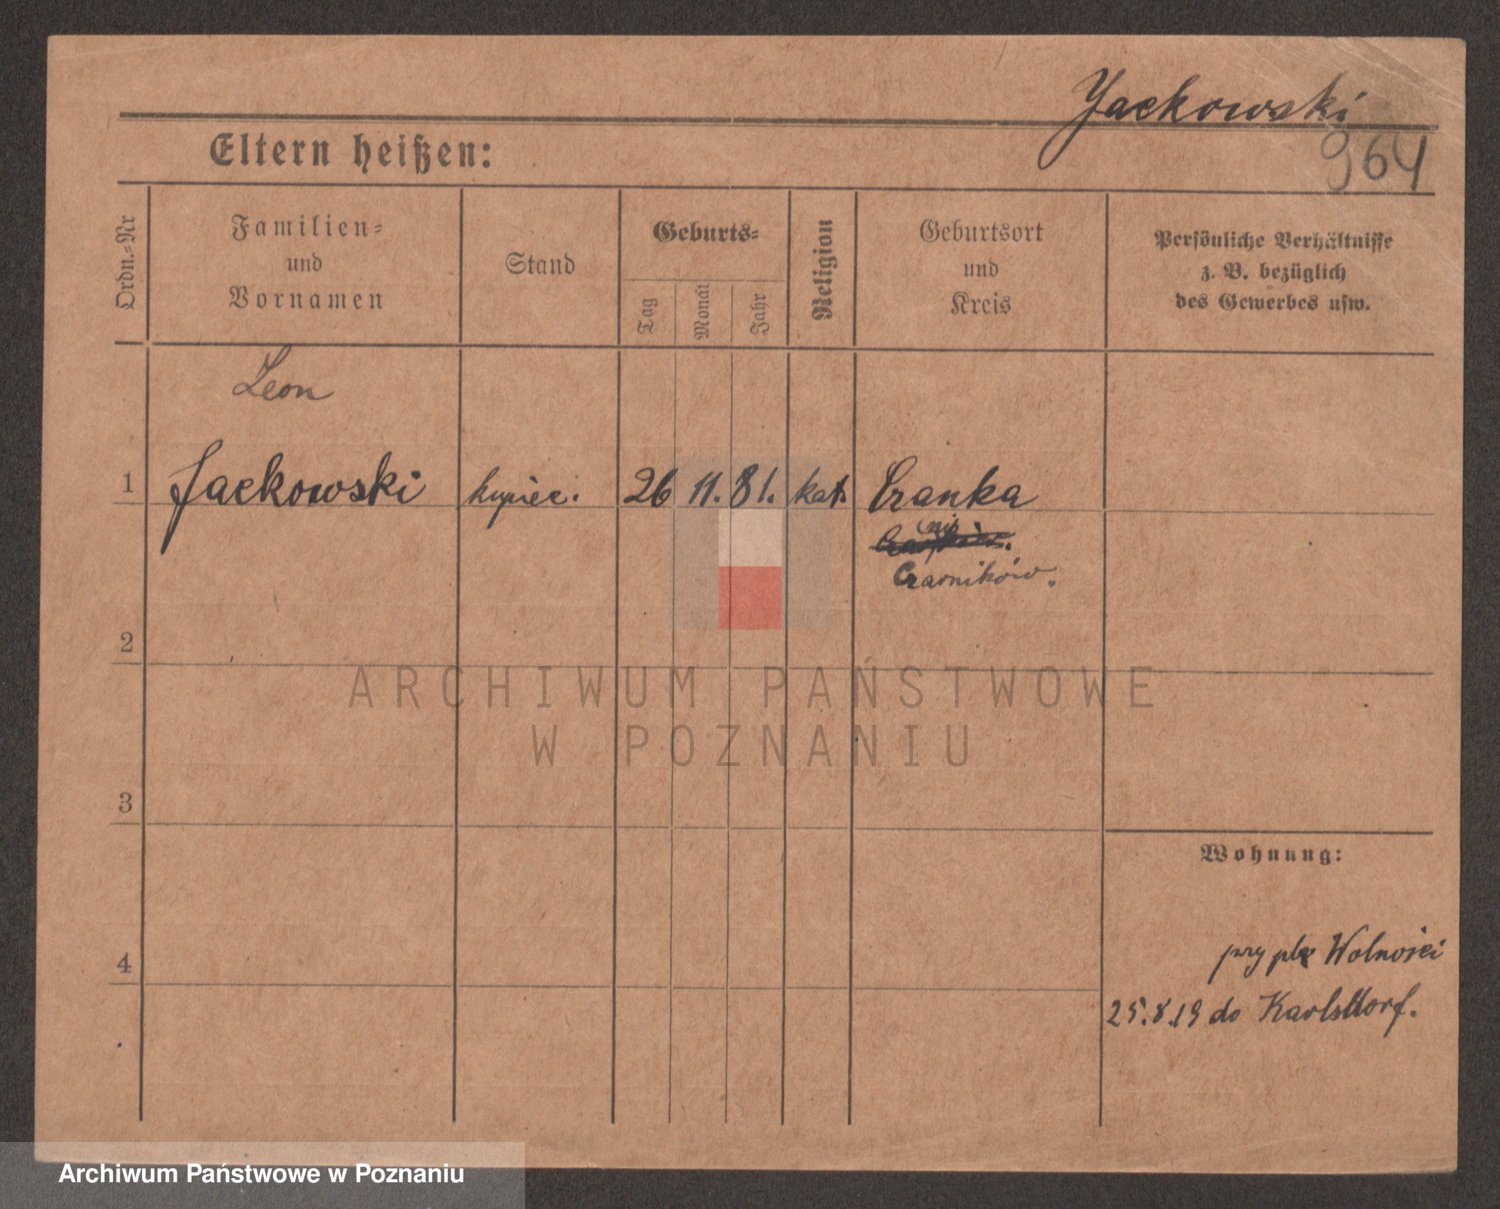 Jackowski
964
Eltern heißen:
Ordn.-Nr
Familien-
und
Vornamen
Stand
Geburts-
Tag
Monat
Jahr
Religion
Geburtsort
und
Kreis
Persönliche Verhältnisse
z. B. bezüglich
des Gewerbes usw.
Leon
1 Jackowski kupiec. 26 11. 81. kat. Cranka
Czarników.
2
ARCHIWUM PAŃSTWOWE
W POZNANIU
3
Wohnung:
4
przy plx Wolności
25.8.19 do Karlsdorf.
Archiwum Państwowe w Poznaniu